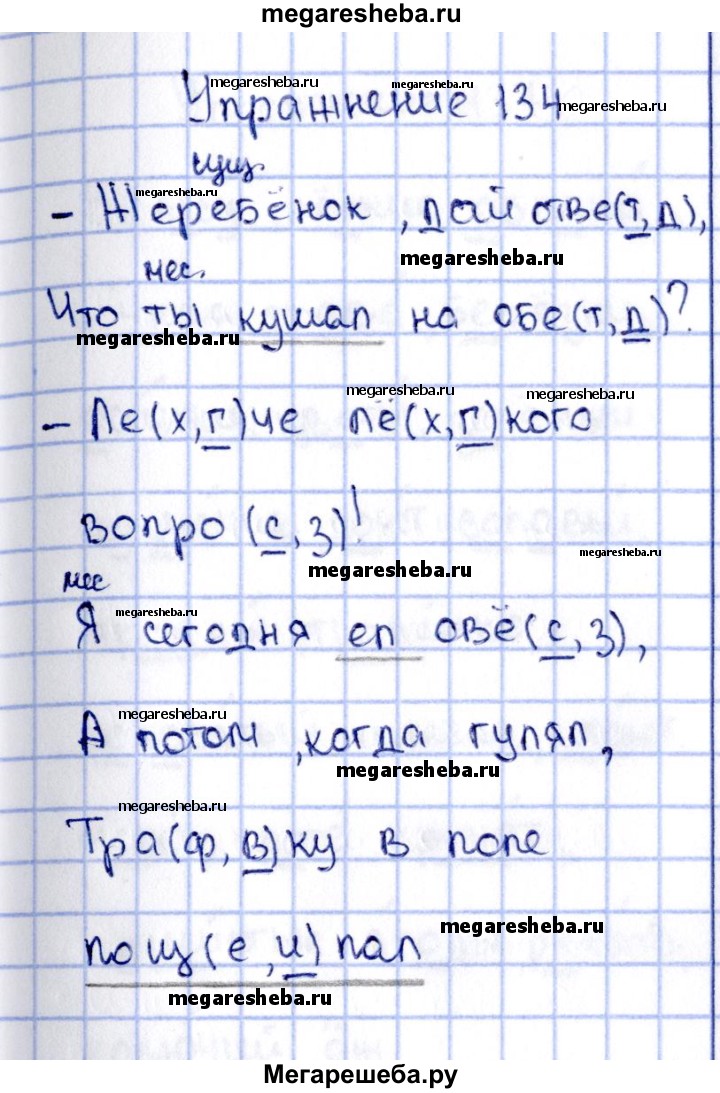 megaresheba.ru
megaresheba.ru megaresheba.ru megaresheba.ru
Упражнение 134
сущ.
megaresheba.ru
– Жеребёнок, дай отве(т,д),
мес. megaresheba.ru
Что ты кушал на обе(т,д)?
megaresheba.ru
megaresheba.ru megaresheba.ru
– Ле(х,г)че лё(х,г)кого
вопро(с,з)!
megaresheba.ru megaresheba.ru
мес
megaresheba.ru
Я сегодня ел овё(с,з),
megaresheba.ru
А потом, когда гулял,
megaresheba.ru
megaresheba.ru
Тра(ф,в)ку в поле
megaresheba.ru
пощ(е,и)пал
megaresheba.ru
Мегарешеба.ру